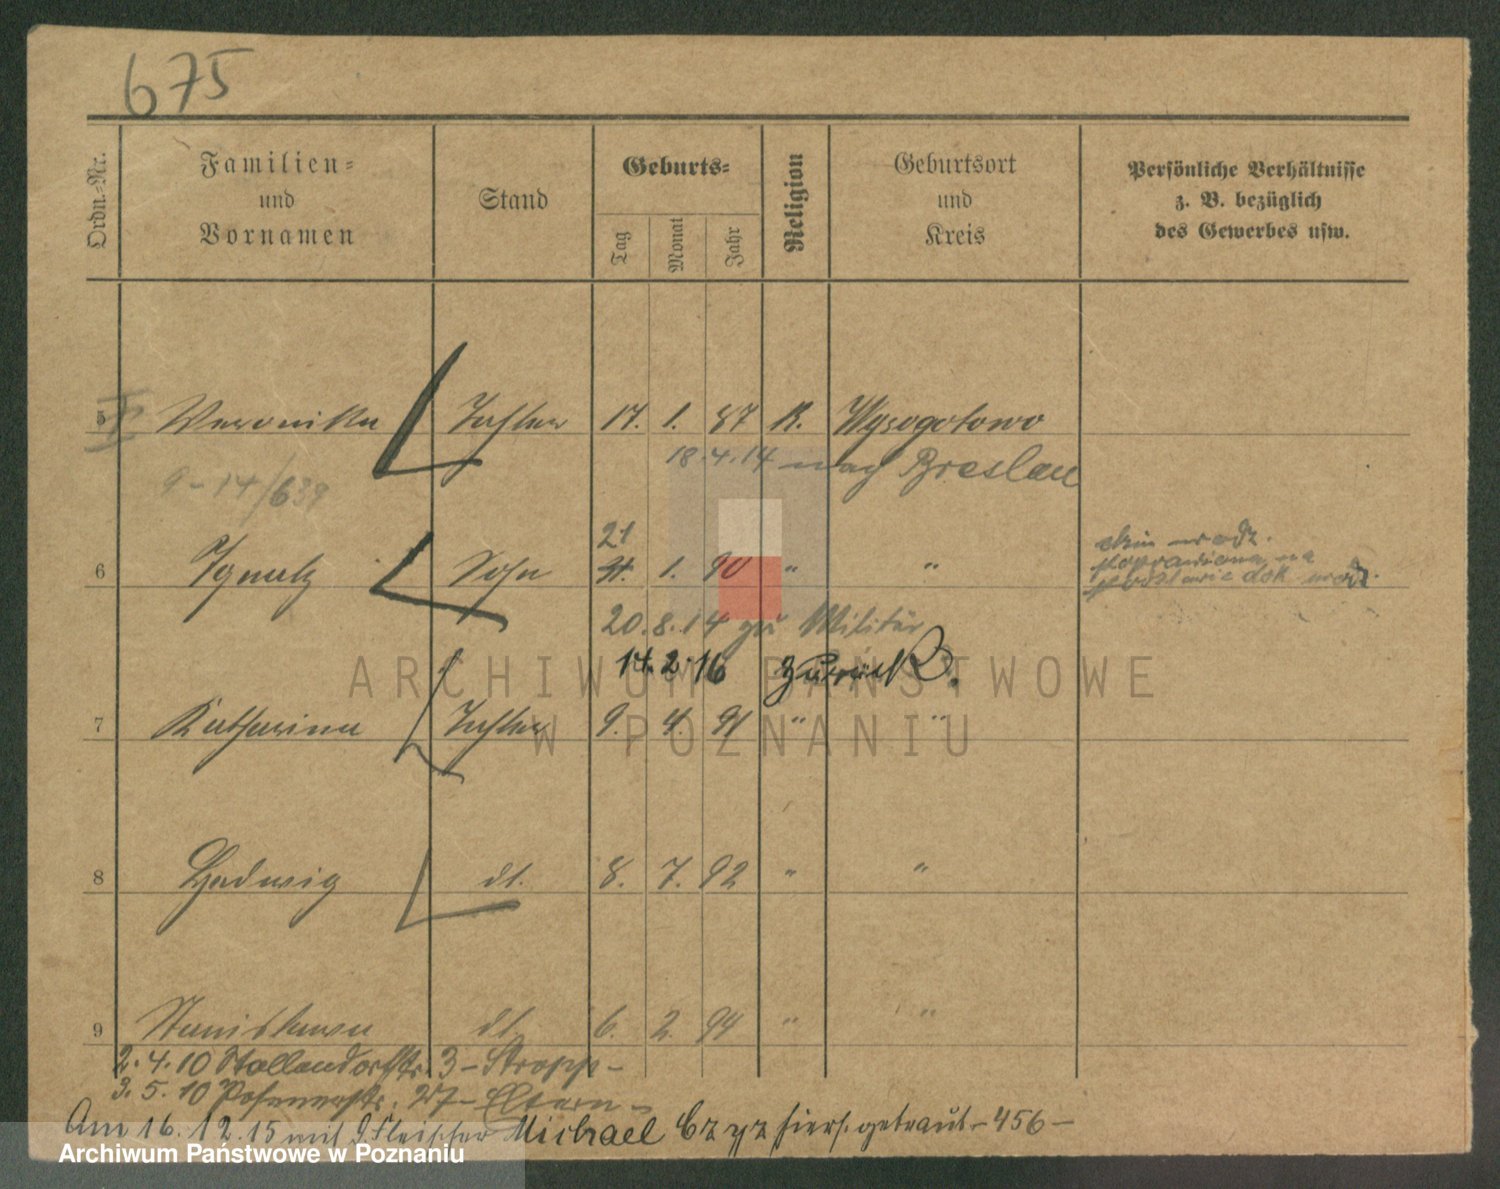 675
Ordn.-Nr.
Familien- und Vornamen
Stand
Geburts-
Tag Monat Jahr
Religion
Geburtsort und Kreis
Persönliche Verhältnisse z. B. bezüglich des Gewerbes usw.
5 Veronika Tochter 17. 1. 87 K. Wysogotowo
18.4.14 nach Breslau
9-14/639
21
6 Ignatz Sohn 1. 90 " "
dzin urodz.
poprawiono na
podstawie dok urodz.
20.8.14 zu Militär
14.2.16 zurück.
7 Katharina Tochter 9. 4. 91 " "
8 Hedwig dt. 8. 7. 92 " "
9 Stanislawa dt. 6. 2. 94 " "
2.4.10 3-
3.5.10 Posenerstr. 27- Eltern-
Am 16.12.15 mit d. Fleischer Michael hiers. getraut-456-
ARCHIWUM PAŃSTWOWE
W POZNANIU
Archiwum Państwowe w Poznaniu